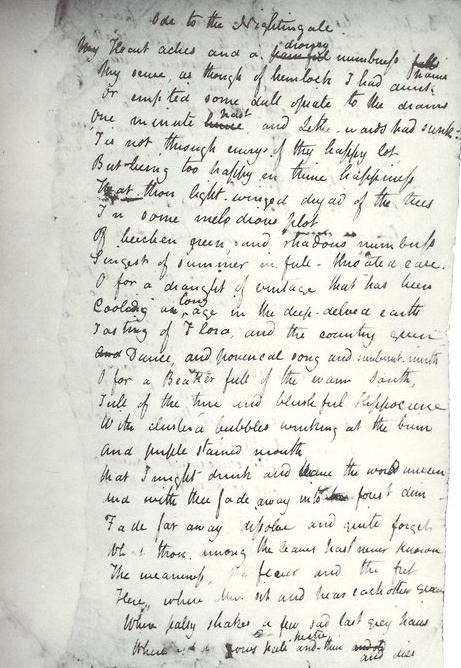 Ode to the Nightingale.
My Heart aches and a drowsy painful numbness falls pains
My sense, as though of hemlock I had drunk
Or emptied some dull opiate to the drains
One minute hence past and Lethe-wards had sunk.
Tis not through envy of thy happy lot
But being too happy in thine happiness
That thou light-winged dryad of the trees
In some melodious plot
Of beechen green, and shadows numberless
Singest of summer in full-throated ease.
O for a draught of vintage that has been
Cooling an long age in the deep-delved earth
Tasting of Flora, and the country green
And Dance, and provencal song and sunburnt mirth
O for a Beaker full of the warm South,
Full of the true and blushful Hippocrene
With cluster'd bubbles winking at the brim
And purple stained mouth
that I might drink and leave the world unseen
And with thee fade away into the forest dim -
Fade far away dissolve and quite forget
What thou among the leaves hast never known
The weariness, the fever and the fret
Here, where Men sit and hear each other groan
Where palsy shakes a few sad last grey hairs
Where grows pale and thin and dies